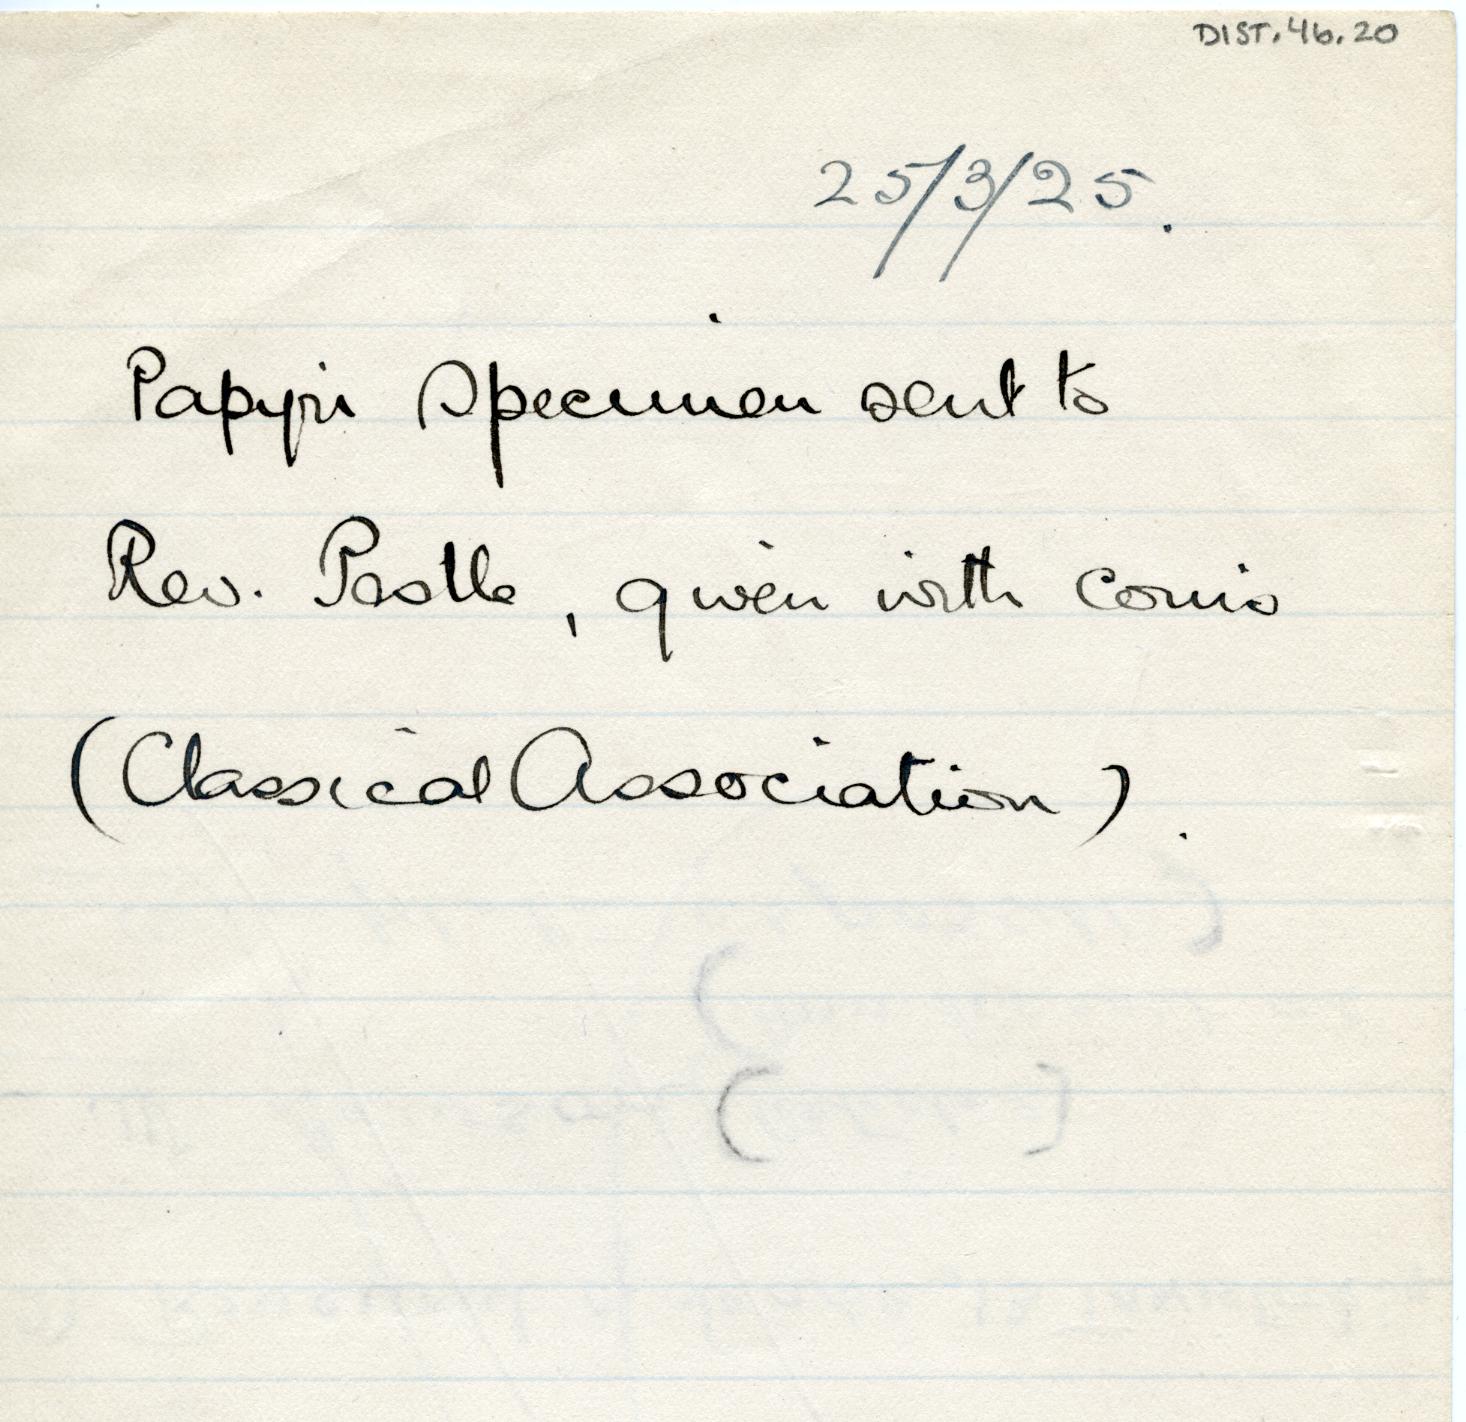 DIST.46.20
25/3/25.
Papyri Specimen sent to
Rev. Postle, given with coins
(Classical Association).